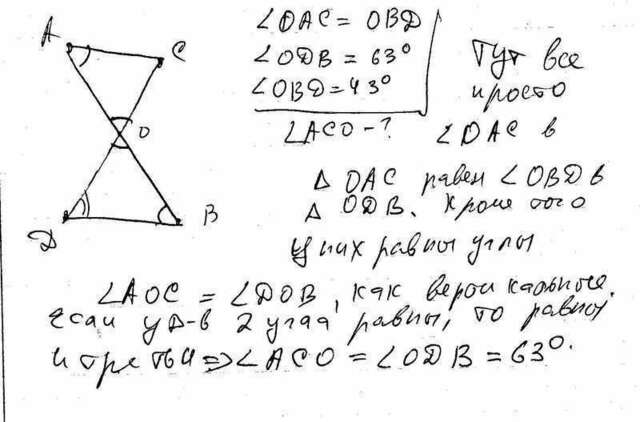 A
C
O
D
B
∠OAC = OBD
∠ODB = 63°
∠OBD = 43°
∠ACO - ?
Тут все
просто
∠OAC в
Δ OAC равен ∠OBD в
Δ ODB. Кроме того
у них равны углы
∠AOC = ∠DOB, как вертикальные.
если у Δ-в 2 угла равны, то равны
и третьи => ∠ACO = ∠ODB = 63°.